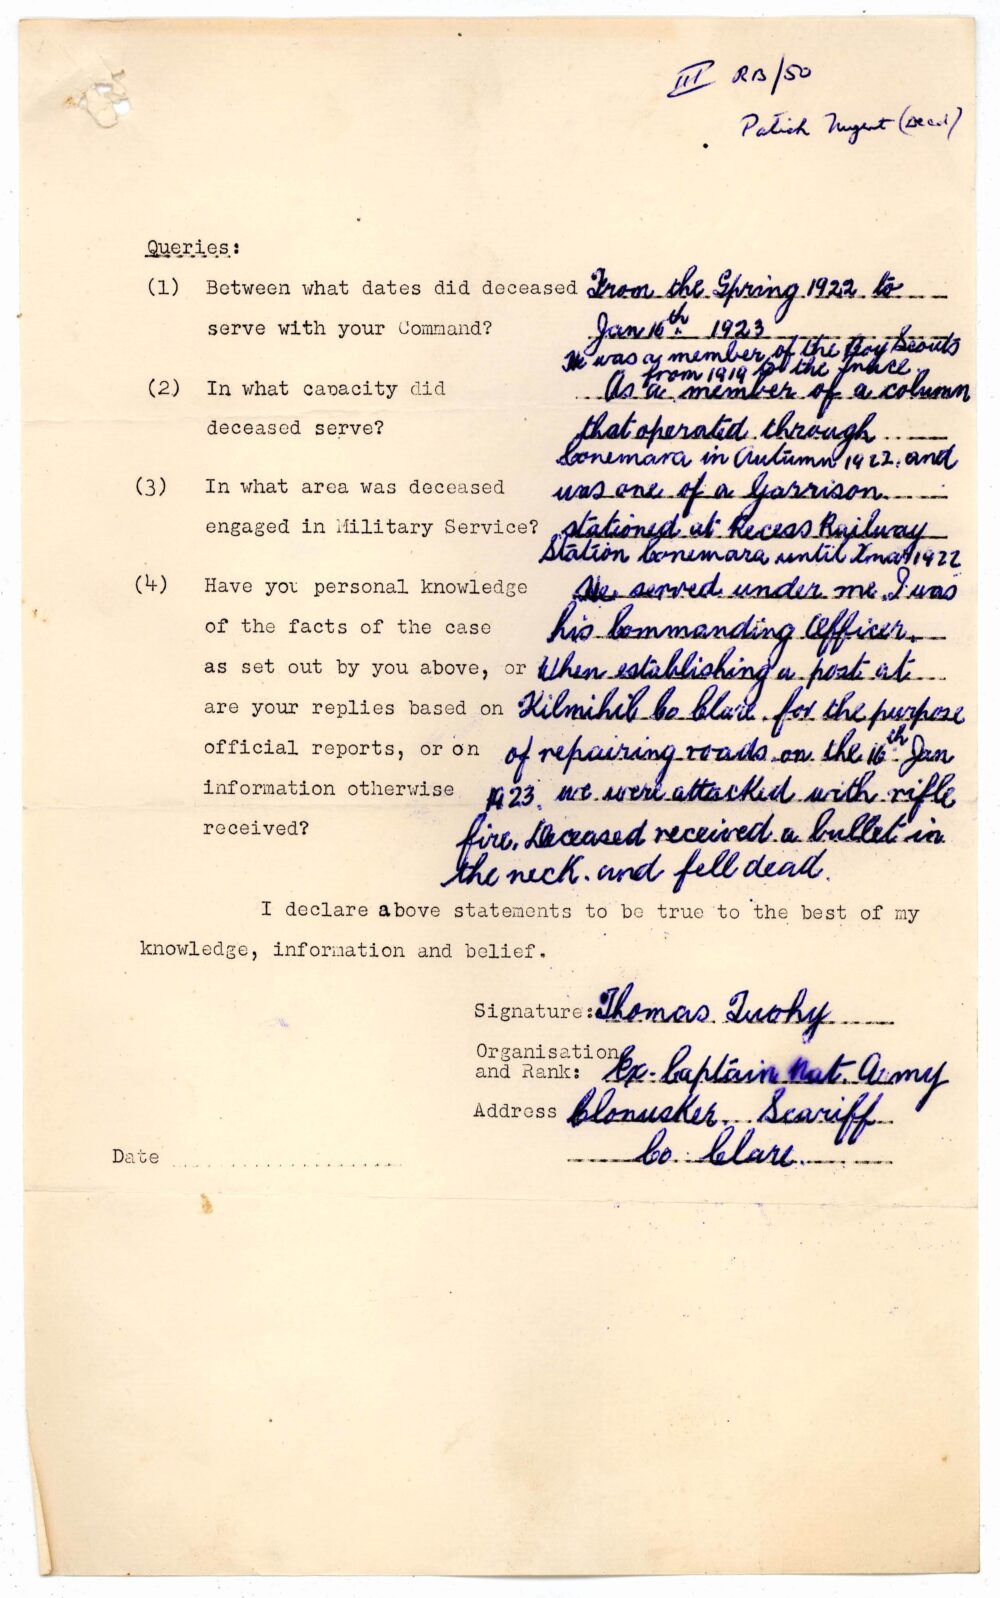 III RB/50
Patrick Nugent (Decd)
Queries:
(1) Between what dates did deceased From the Spring 1922 to
serve with your Command? Jan 16th 1923
He was a member of the Boy Scouts
from 1919 to the truce.
(2) In what capacity did As a member of a column
deceased serve? that operated through
Conemara in Autumn 1922. and
(3) In what area was deceased was one of a Garrison
engaged in Military Service? stationed at Recess Railway
Station Conemara until Xmas 1922
(4) Have you personal knowledge He served under me. I was
of the facts of the case his Commanding Officer.
as set out by you above, or When establishing a post at
are your replies based on Kilmihil Co Clare. for the purpose
official reports, or on of repairing roads. on the 16th Jan
information otherwise 1923. we were attacked with rifle
received? fire. Deceased received a bullet in
the neck. and fell dead.
I declare above statements to be true to the best of my
knowledge, information and belief.
Signature: Thomas Tuohy
Organisation
and Rank: Ex-Captain Nat. Army
Address Clonusker. Scariff
Date Co. Clare.